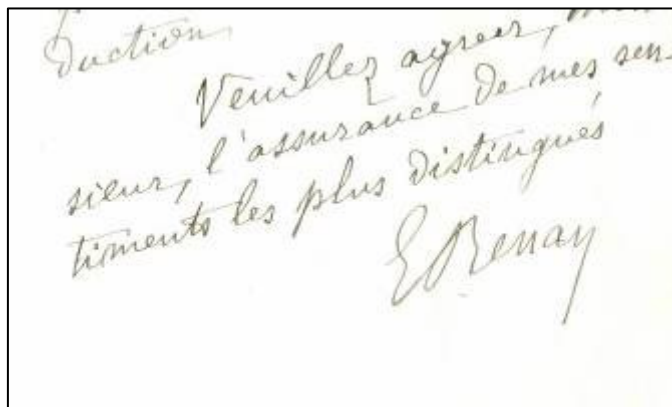 duction
Veuillez agréer, mon
sieur, l'assurance de mes sen-
timents les plus distingués
E Renan